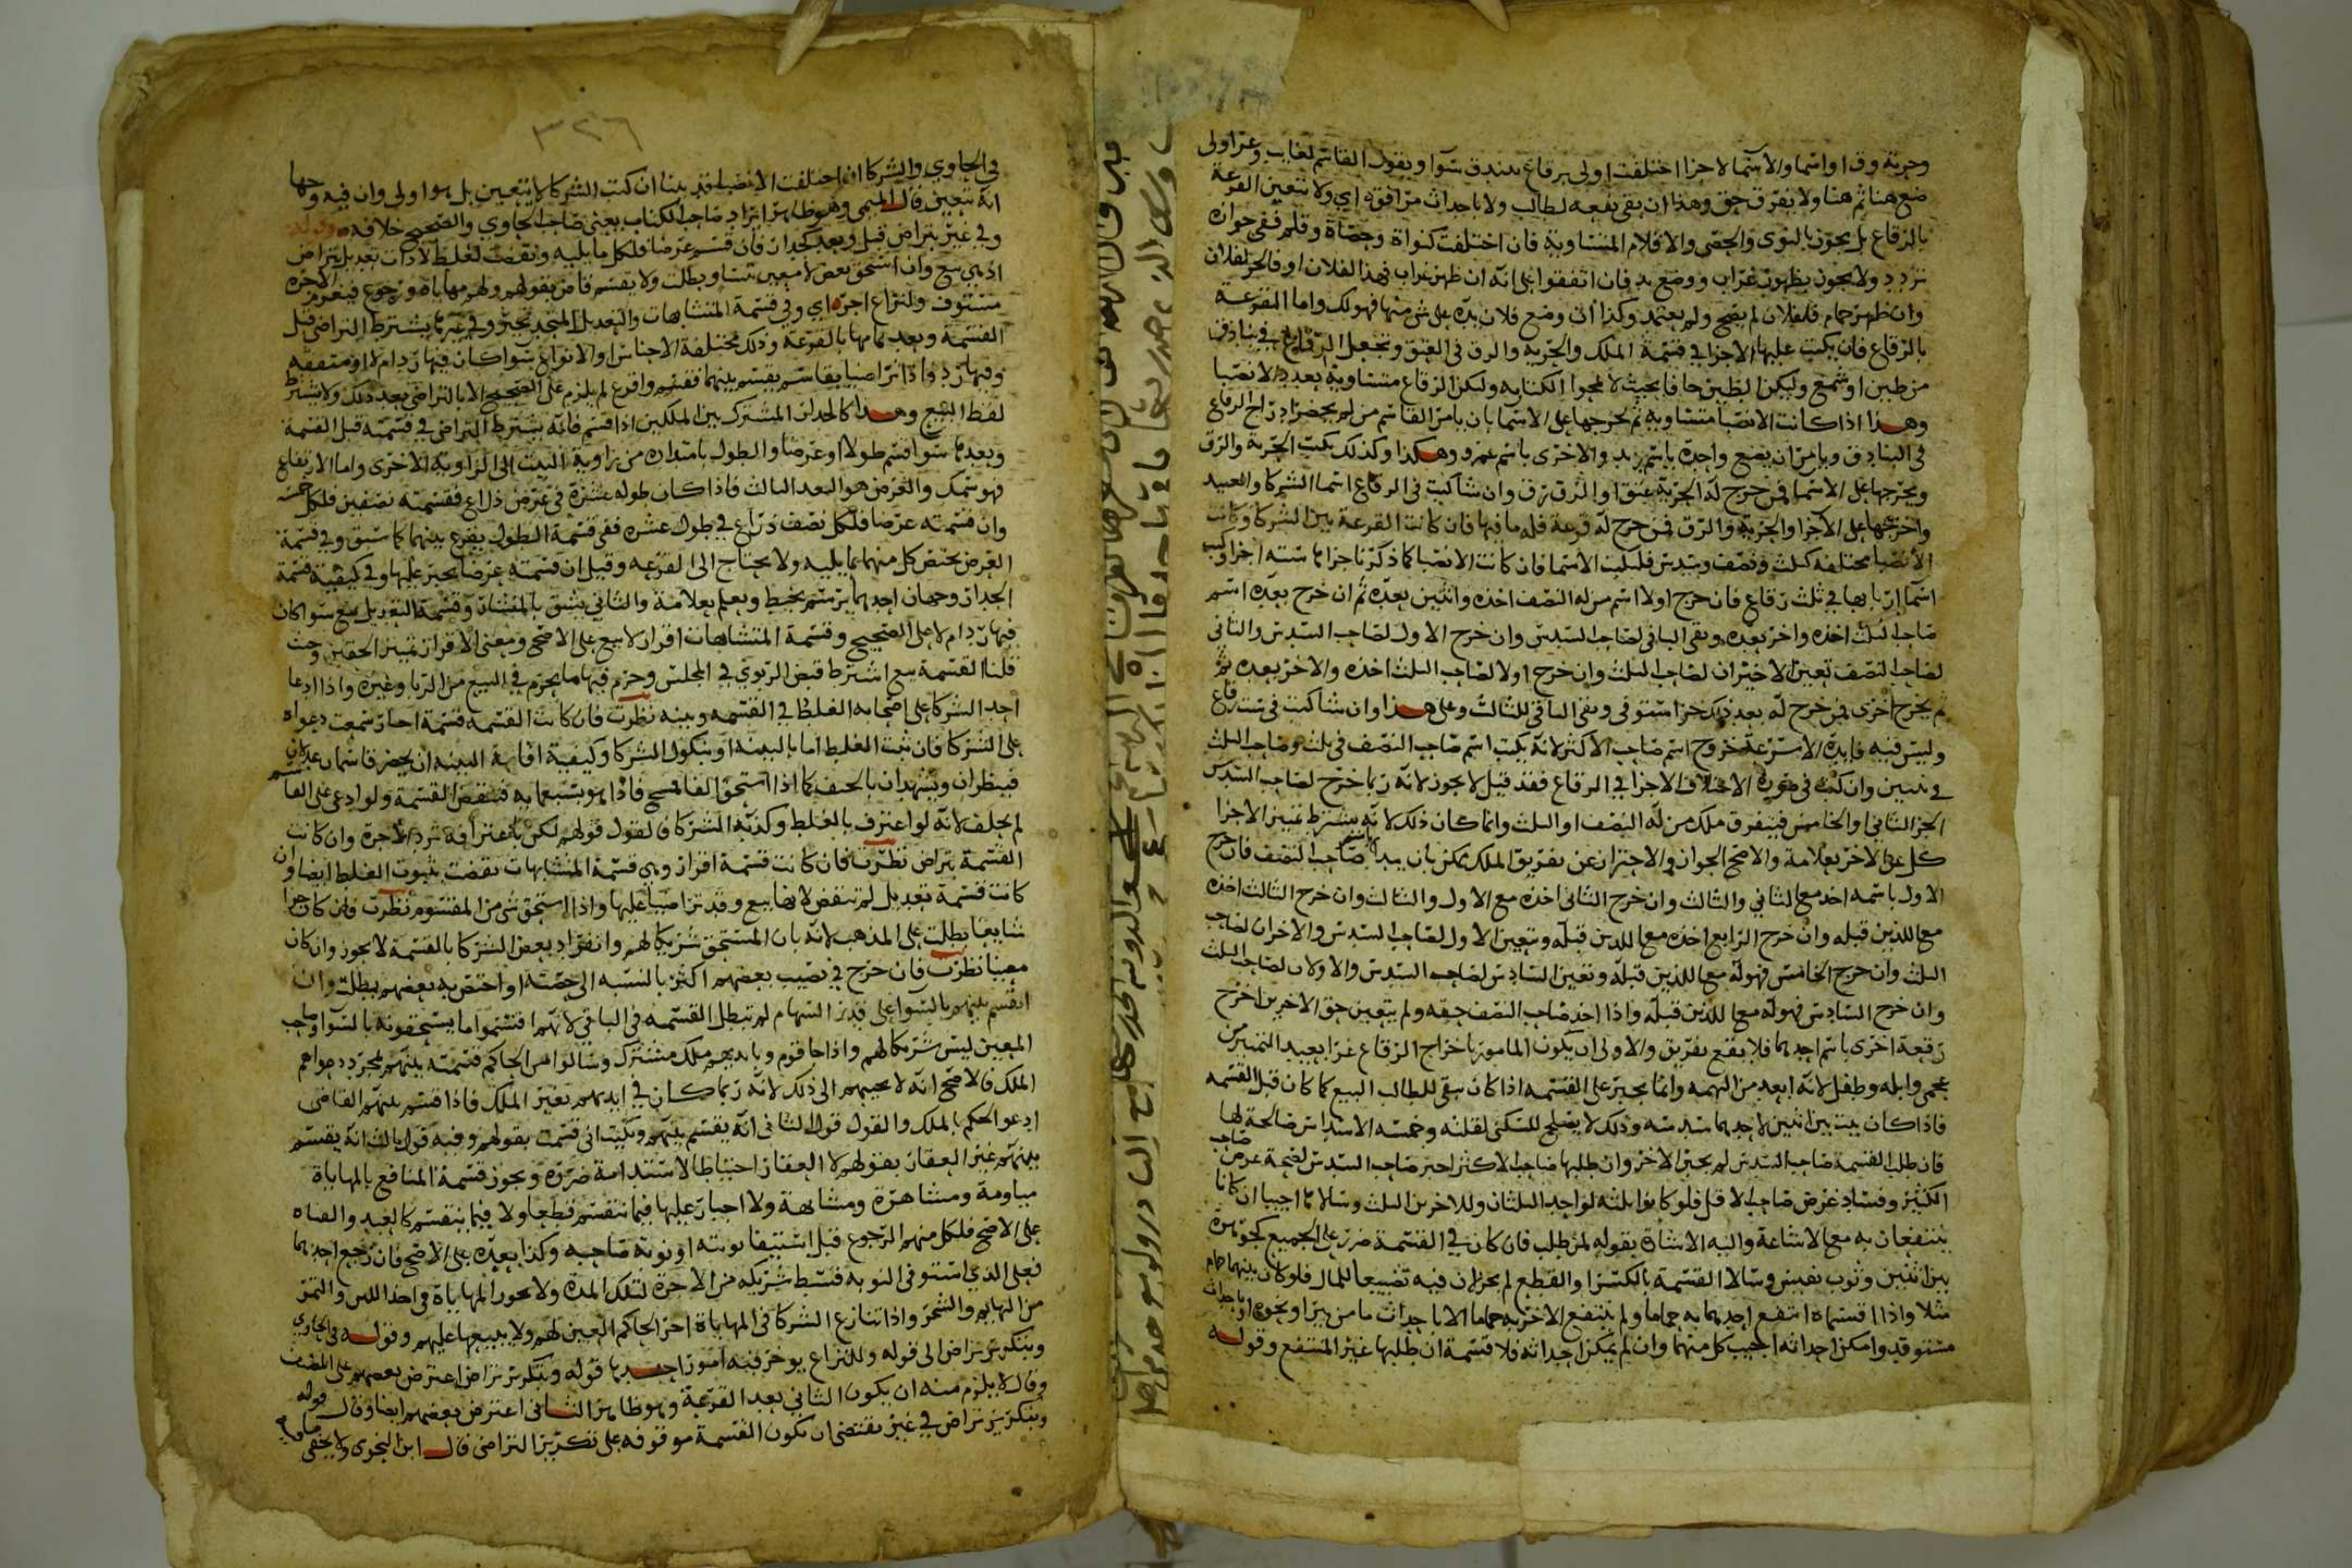 وحرية ورق او اسما والاسما لاجزا اختلفت اولى برقاع ببندق سوآ ويقول القاسم لغايب وغيرا ولى
ضع هنا ثم هنا ولا يفرق حق وهذا ان بقي نفعه لطالب ولا باحداث مرافقه اي ولا تتعين القرعة
بالرقاع بل يجوز بالنوى والحصى والاقلام المتساوية فان اختلفت كنواة وحصاة وقلم ففي جوازه
تردد ولا يجوز بظهور غراب ووضع يد فان اتفقوا على انه ان ظهر غراب فهذا لفلان او فالحق لفلان
وان ظهر حمام فلفلان لم يصح ولم يعتمد وكذا ان وضع فلان يده على شي منها فهو لك واما القرعة
بالرقاع فان يكتب عليها الاجزا في قسمة الملك والحرية والرق في العتق وتجعل الرقاع في بنادق
من طين او شمع وليكن الطين جافا بحيث لا تمحوا الكتابه ولتكن الرقاع متساوية بعدد الانصبا
وهذا اذا كانت الانصبا متساويه ثم تخرجها على الاسما بان يامر القاسم من لم يحضر ادراج الرقاع
في البنادق ويامره ان يضع واحدة باسم زيد والاخرى باسم عمرو وهكذا وكذلك يكتب الحرية والرق
ويخرجها على الاسما فمن خرج له الحرية عتق او الرق رق وان شا كتب في الرقاع اسما الشركا والعبيد
واخرجها على الاجزا والحرية والرق فمن خرج له قرعة فله ما فيها فان كانت القرعة بين الشركا وكانت
الانصبا مختلفه كثلث ونصف وسدس فليكتب الاسما فان كانت الانصبا كما ذكرنا جزاها سته اجزا وكتب
اسما اربابها في ثلث رقاع فان خرج اولا اسم من له النصف اخذه واثنين بعده ثم ان خرج بعده اسم
صاحب الثلث اخذه واخر بعده وبقي الباقي لصاحب السدس وان خرج الاول لصاحب السدس والثاني
لصاحب النصف تعين الاخيران لصاحب الثلث وان خرج اولا لصاحب الثلث اخذه والاخر بعده ثم
ثم يخرج اخرى فمن خرج له بعد ذلك جزا استوفى وبقي الباقي للثالث وعلى هذا وان شا كتب في ست رقاع
وليس فيه فايدة الا سرعة خروج اسم صاحب الاكثر لانه يكتب اسم صاحب النصف في ثلث وصاحب الثلث
في ثنتين وان كتب في صورة الاختلاف الاجزا في الرقاع فقد قيل لا يجوز لانه ربما خرج لصاحب السدس
الجز الثاني او الخامس فيتفرق ملك من له النصف او الثلث وانما كان ذلك لانه يشترط تمييز الاجزا
كل عن الاخر بعلامة والاصح الجواز والاحتراز عن تفريق الملك يمكن بان يبدا باسم صاحب النصف فان خرج
الاول باسمه اخذه مع الثاني والثالث وان خرج الثاني اخذه مع الاول والثالث وان خرج الثالث اخذه
مع اللذين قبله وان خرج الرابع اخذه مع اللذين قبله وتعين الاول لصاحب السدس والاخران لصاحب
الثلث وان خرج الخامس فهو له مع اللذين قبله وتعين السادس لصاحب السدس والاولان لصاحب الثلث
وان خرج السادس فهو له مع اللذين قبله واذا اخذ صاحب النصف حقه ولم يتعين حق الاخرين اخرج
رقعة اخرى باسم احدهما فلا يقع تفريق والاولى ان يكون المامور باخراج الرقاع غرا بعيد التمييز من
عجمي وابله وطفل لانه ابعد من التهمه وانما يجبر على القسمه اذا كان يبقى للطالب البيع كما كان قبل القسمه
فاذا كان بيت بين اثنين لاحدهما سدسه وذلك لا يصلح للسكنى لقلته وخمسة الاسداس صالحة لها
فان طلب القسمة صاحب السدس لم يجبر الاخر وان طلبها صاحب الاكثر اجبر صاحب السدس لصحة عرض صاحب
الكثير وفساد غرض صاحب الاقل فلو كانوا ثلثه لواحد الثلثان وللاخرين الثلث وسالاها اجيبا ان كانا
ينتفعان به مع الاشاعة واليه الاشارة بقوله لمن طلب فان كان في القسمة ضرر على الجميع كجوهرة
بين اثنين وثوب نفيس وسالا القسمة بالكسر او القطع لم يجز لان فيه تضييعا للمال فلو كان بينهما حمام
مثلا واذا اقتسماه انتفع احدهما به حماما ولم ينتفع الاخر به حماما الا باحداث ما من بير او نحوه او باحداث
مستوقد وامكن احداثه اجيب كل منهما وان لم يمكن احداثه فلا قسمة ان طلبها غير المنتفع وقوله
٣٢٦
في الحاوي والشركا ان اختلفت الانصبا قد بينا ان كتب الشركا لا يتعين بل هو اولى وان فيه وجها
انه يتعين قال المتمى وهو ظاهر ايراد صاحب الكتاب يعني صاحب الحاوي والصحيح خلافه وقوله
وفي غير بتراض قبل وبعد كجدار فان قسم عرضا فلكل ما يليه ونقضت لغلط لا ذات تعديل بتراض
اذ هي بيع وان استحق بعض لا معين تساو بطلت ولا يقسم قاض بقولهم ولهم مهاياة ورجوع فيغرم الاجرة
مستوف ولنزاع اجره اي وفي قسمة المتشابهات والتعديل المتحد يجبر وفي غيرهما يشترط التراضي قبل
القسمة وبعد تمامها بالقرعة وذلك مختلفة الاجناس او الانواع سوا كان فيها رد ام لا او متفقه
وفيها رد واذا تراضيا بقاسم يقسم بينهما فقسم واقرع لم يلزم على الصحيح الا بالتراضي بعد ذلك ولا يشترط
لفظ البيع وهذا كالجدار المشترك بين الملكين اذا قسم فانه يشترط التراضي في قسمته قبل القسمة
وبعدها سوا قسم طولا او عرضا والطول بامتداده من زاوية البيت الى الزاوية الاخرى واما الارتفاع
فهو سمك والعرض هو البعد الثالث فاذا كان طوله عشرة في عرض ذراع فقسمته نصفين فلكل خمسة
وان قسمته عرضا فلكل نصف ذراع في طول عشره ففي قسمة الطول يقرع بينهما كما سبق وفي قسمة
العرض يختص كل منهما بما يليه ولا يحتاج الى القرعه وقيل ان قسمته عرضا يجبر عليها وفي كيفية قسمة
الجدار وجهان احدهما يرسم بخيط ويعلم بعلامة والثاني يشق بالمنشار وقسمة التعديل بيع سوا كان
فيها رد ام لا على الصحيح وقسمة المتشابهات اقراز لا بيع على الاصح ومعنى الاقراز تمييز الحقين وحيث
قلنا القسمة بيع اشترط قبض الربوي في المجلس وحرم فيها ما يحرم في البيع من الربا وغيره واذا ادعا
احد الشركا على اصحابه الغلط في القسمه وبينه نظرت فان كانت القسمه قسمة اجبار سمعت دعواه
على الشركا فان ثبت الغلط اما بالبينة او بنكول الشركا وكيفية اقامة البينه ان يحضر قاسمان عدلان
فينظران ويشهدان بالحيف كما اذا استحق الفا فمسح فاذا هو بسبعمايه فتنقض القسمة ولو ادعى على القاسم
لم يحلف لانه لو اعترف بالغلط وكذبه الشركا فالقول قولهم لكن باعترافه ترد الاجرة وان كانت
القسمة بتراض نظرت فان كانت قسمة افراز وهي قسمة المتشابهات نقضت بثبوت الغلط ايضا وان
كانت قسمة تعديل لم تنقض لانها بيع وقد تراضيا عليها واذا استحق شي من المقسوم نظرت فان كان جزا
شايعا بطلت على المذهب لانه بان المستحق شريكا لهم وانفراد بعض الشركا بالقسمة لا يجوز وان كان
معينا نظرت فان خرج في نصيب بعضهم اكثر بالنسبه الى حصته او اختص به بعضهم بطلت وان
انقسم بينهم بالسوا على قدر السهام لم تبطل القسمه في الباقي لانهم اقتسموا ما يستحقونه بالسوا وصاحب
المعين ليس شريكا لهم واذا جا قوم وبايديهم ملك مشترك وسالوا من الحاكم قسمته بينهم بمجرد دعواهم
الملك فالاصح انه لا يجيبهم الى ذلك لانه ربما كان في ايديهم بغير الملك فاذا قسم بينهم القاضي
ادعوا الحكم بالملك والقول قول الثاني انه يقسم بينهم ويكتب اني قسمت بقولهم وفيه قول ثالث انه يقسم
بينهم غير العقار بقولهم لا العقار احتياطا لاستدامة ضرره ويجوز قسمة المنافع بالمهاياة
مياومة ومشاهرة ومسانهة ولا اجبار عليها فيما ينقسم قطعا ولا فيما ينقسم كالعبد والقناه
على الاصح فلكل منهم الرجوع قبل استيفا نوبته او نوبة صاحبه وكذا بعده على الاصح فان رجع احدهما
فعلى الذي استوفى النوبه قسط شريكه من الاجرة لتلك المدة ولا يجوز المهاياة في احد اللبن والتمر
من البهايم والشجر واذا تنازع الشركا في المهاياة اجر الحاكم العين لهم ولا يبيعها عليهم وقوله في الحاوي
وبتكرير تراض الى قوله وللنزاع يوجر فيه امور احدها قوله وبتكرير تراض اعترض بعضهم على المصنف
وقال لا يلزم منه ان يكون الثاني بعد القرعة وهو ظاهر الثاني اعترض بعضهم ايضا وقال قوله
وبتكرير تراض في غير يقتضي ان تكون القسمة موقوفه على تكرير التراضي قال ابن النحوي ولا يخفى ما فيه